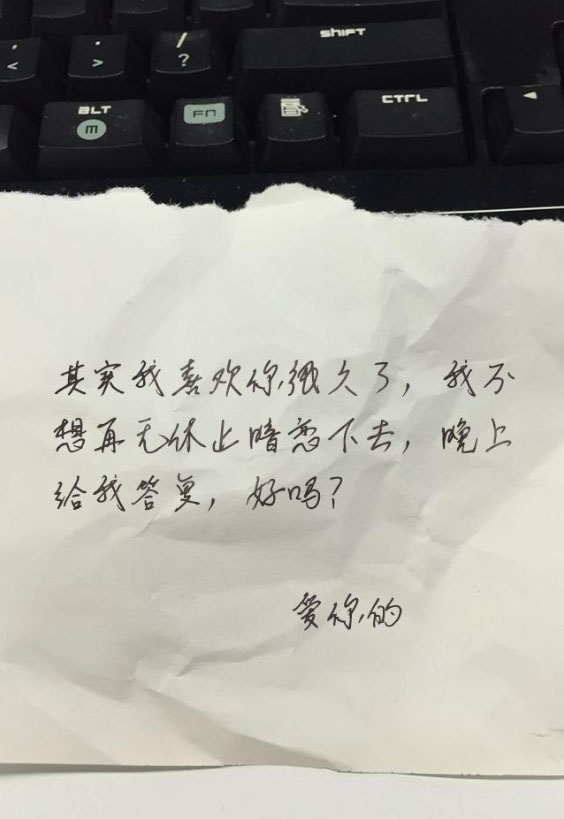 SHIFT
< , > . / ?
ALT FN CTRL
M
其实我喜欢你很久了，我不
想再无休止暗恋下去，晚上
给我答复，好吗？
爱你的